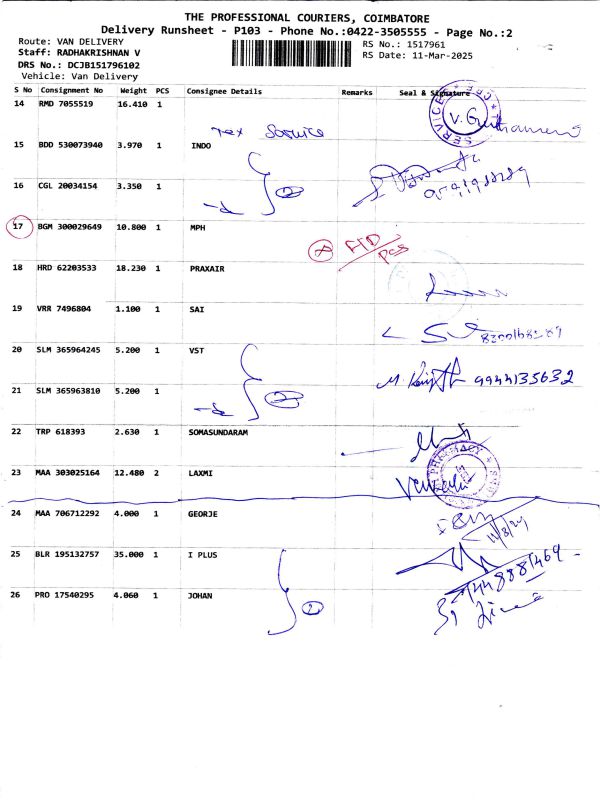 THE PROFESSIONAL COURIERS, COIMBATORE
Delivery Runsheet - P103 - Phone No.:0422-3505555 - Page No.:2
Route: VAN DELIVERY
Staff: RADHAKRISHNAN V
DRS No.: DCJB151796102
Vehicle: Van Delivery
RS No.: 1517961
RS Date: 11-Mar-2025
S No Consignment No Weight PCS Consignee Details Remarks Seal & Signature
14 RMD 7055519 16.410 1
Tex Service
15 BDD 530073940 3.970 1 INDO
16 CGL 20034154 3.350 1
2
17 BGM 300029649 10.800 1 MPH
PCS
18 HRD 62203533 18.230 1 PRAXAIR
19 VRR 7496804 1.100 1 SAI
20 SLM 365964245 5.200 1 VST
9944135632
21 SLM 365963810 5.200 1
2
22 TRP 618393 2.630 1 SOMASUNDARAM
PHARMACY
23 MAA 303025164 12.480 2 LAXMI
24 MAA 706712292 4.000 1 GEORJE
25 BLR 195132757 35.000 1 I PLUS
26 PRO 17540295 4.060 1 JOHAN
2